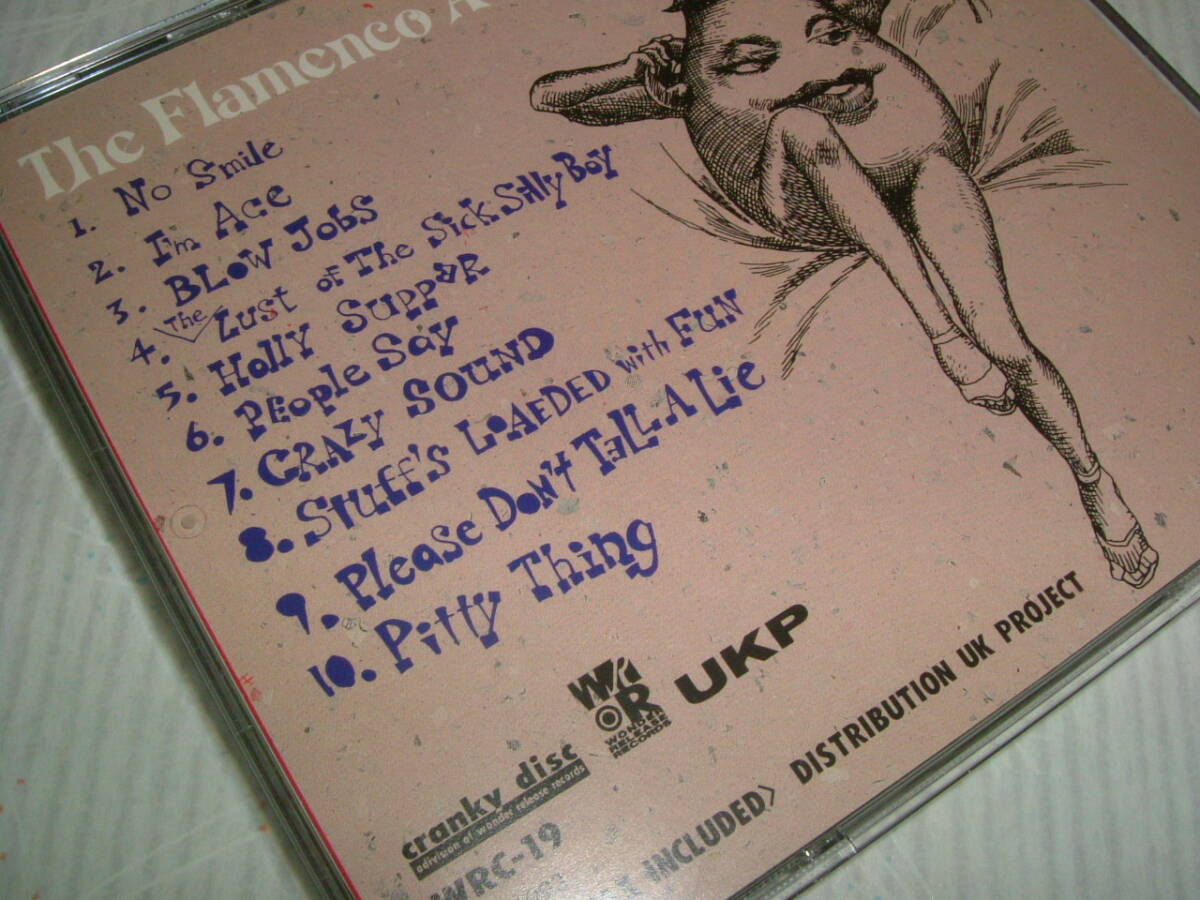 The Flamenco A
1. No Smile
2. I'm Ace
3. BLOW JOBS
4. The Lust of The Sick Silly Boy
5. Holly Suppor
6. People Say
7. CRAZY SOUND
8. Stuff's LOAEDED with FUN
9. Please Don't TELL A Lie
10. Pitty Thing
WONDER RELEASE RECORDS
UKP
cranky disc
a division of wonder release records
WRC-19
INCLUDED〉 DISTRIBUTION UK PROJECT